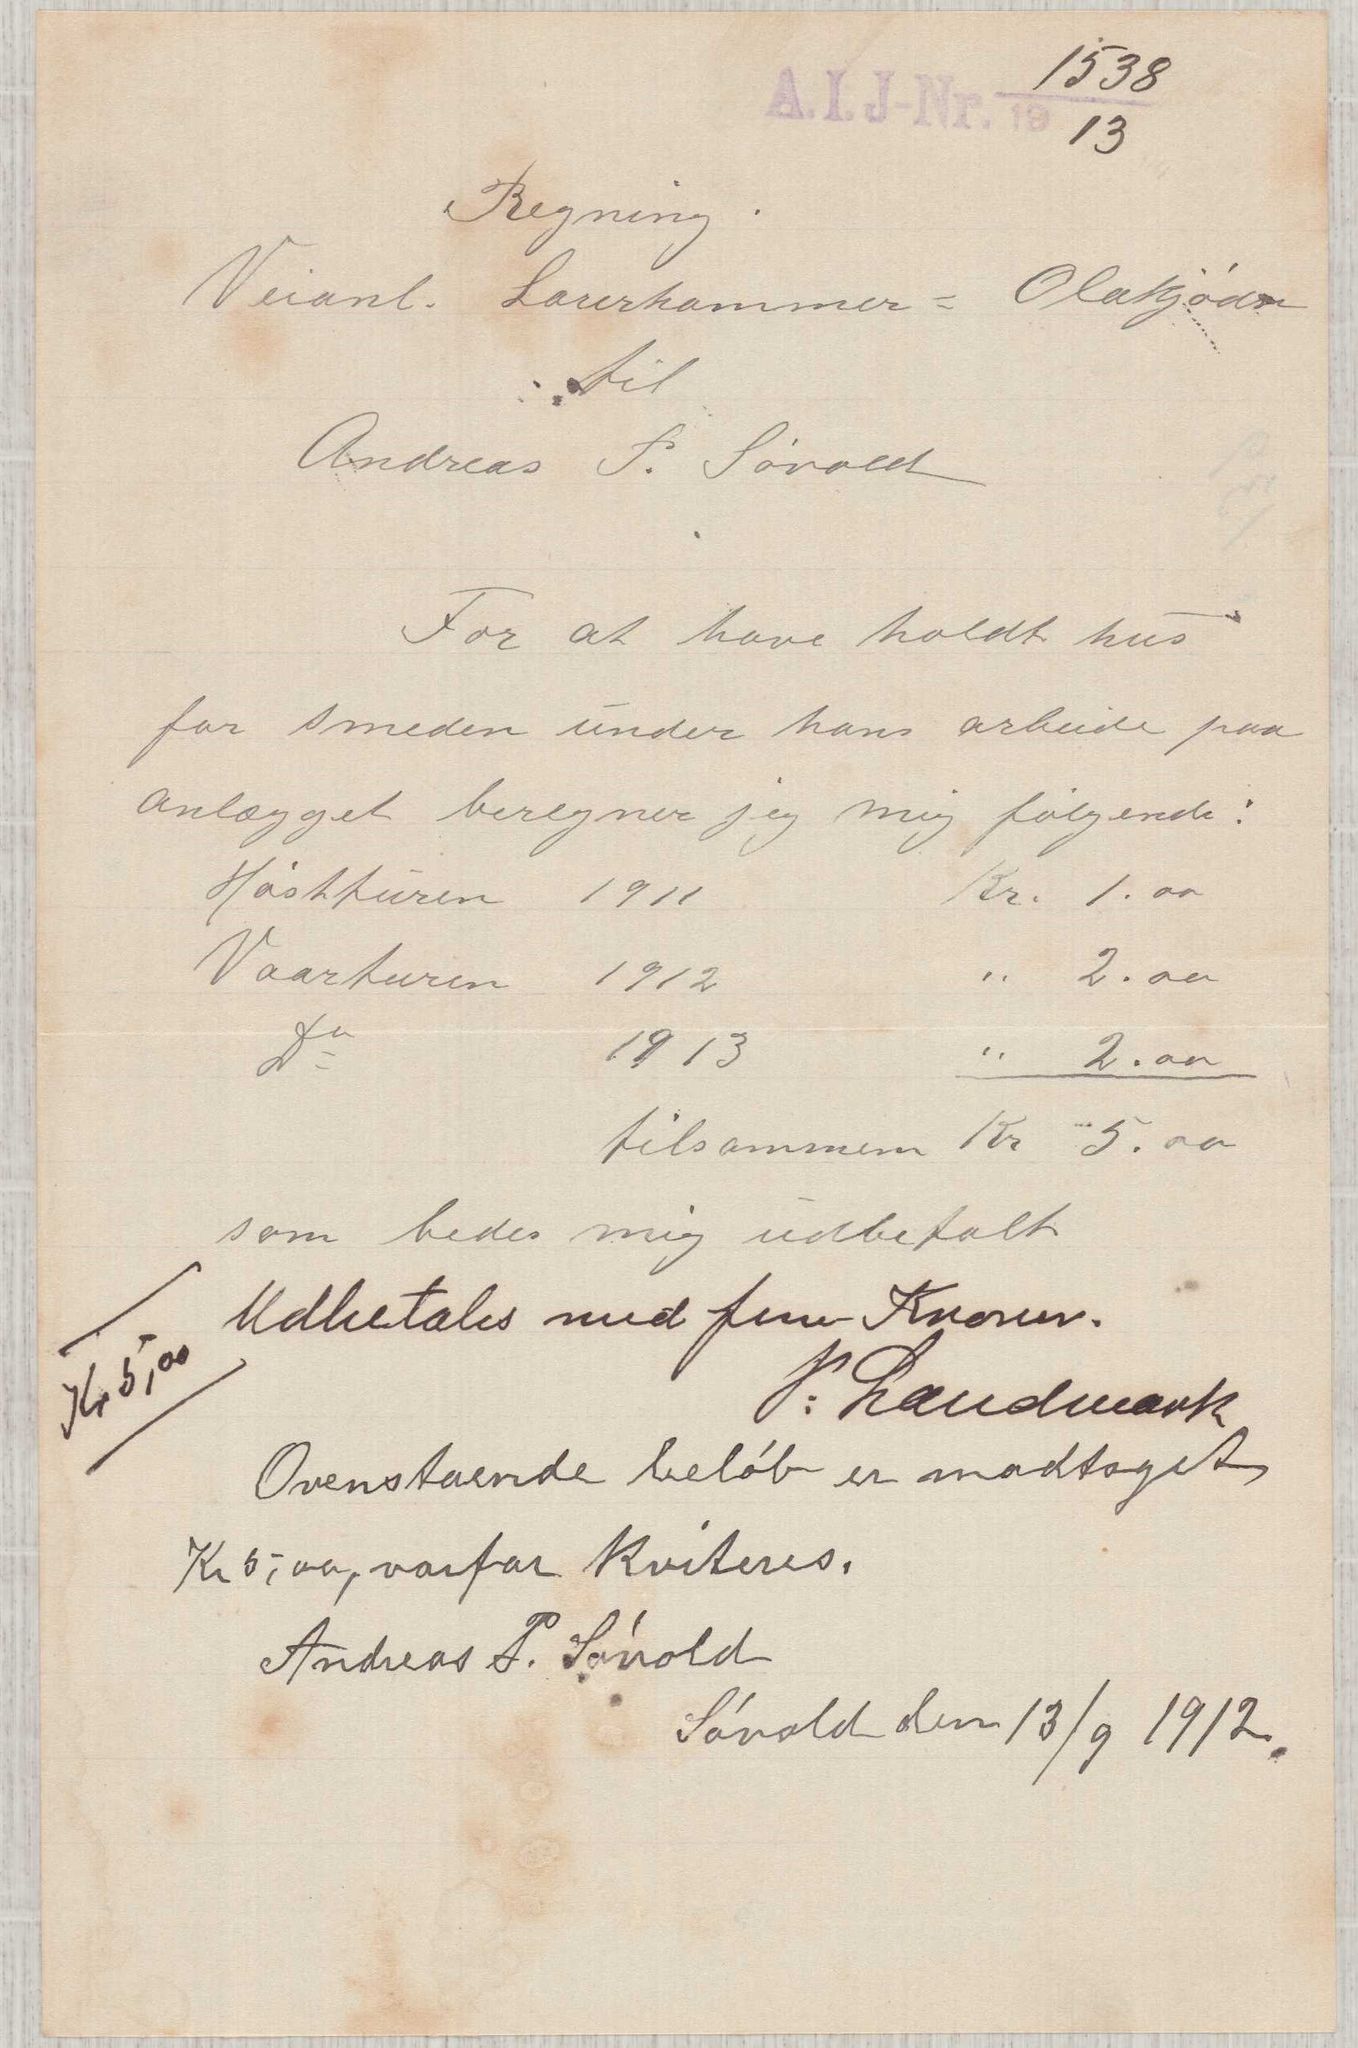 A.I.J-Nr. 1538
19 13
Regning.
Veianl. Larerhammer = Olakjödn
til
Andreas P. Sövold
For at have holdt hus
for smeden under hans arbeide paa
anlægget beregner jeg mig fölgende:
Hösttüren 1911 Kr. 1.00
Vaarturen 1912 " 2.00
Do 1913 " 2.00
tilsammem Kr 5.00
som bedes mig üdbetalt
Udbetales med fem Kroner.
Kr 5,00
P. Landmark
Ovenstaende belöb er modtaget
Kr 5,00, vorfor kviteres.
Andreas P. Sóvold
Sóvold den 13/9 1912.